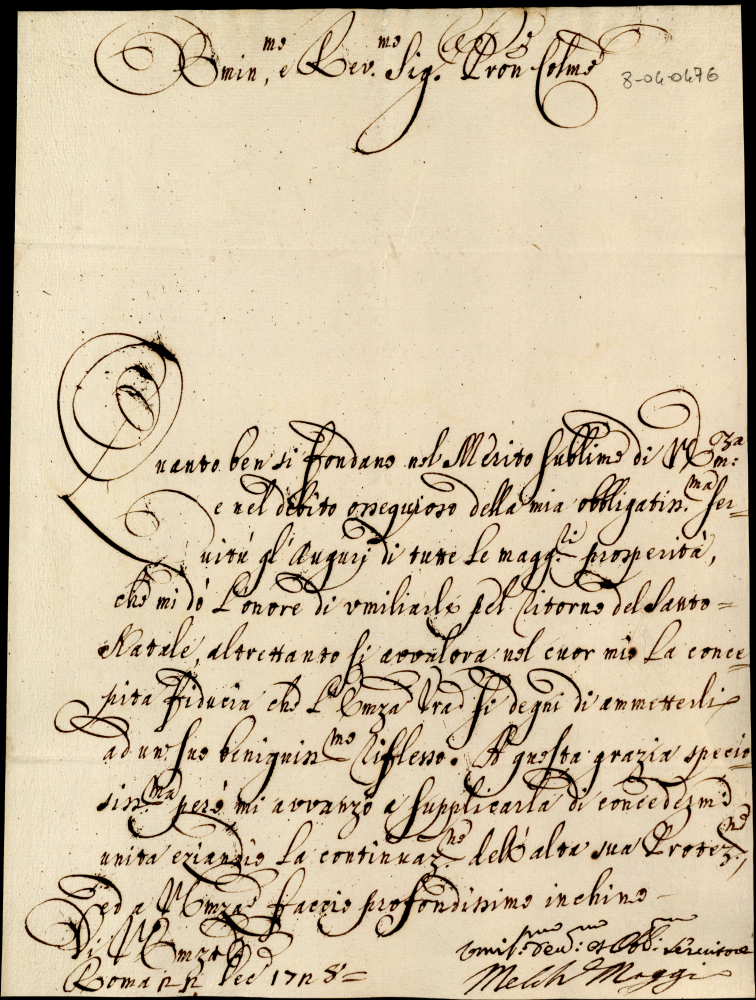 Emin.mo, e Rev.mo Sig.r Pron Colmo
8-04-0476
Quanto ben si fondano nel Merito sublime di V. Em:za
e nel debito ossequioso della mia obbligatiss.ma ser-
uitù gl'Augurj di tutte le magg.ri prosperità,
che mi dò l'onore di vmiliarle pel ritorno del Santo=
Natale, altrettanto si avvalora nel cuor mio la conce=
pita fiducia che l'Emza Vra si degni di ammetterli
ad un suo benigniss.mo riflesso. A questa grazia specio
siss.ma però mi avvanzo a supplicarla di concedermi
unita eziandio la continuaz.ne dell'alta sua Protez.ne,
ed a V. Emza faccio profondissimo inchino
Di V. Emza
Roma 22 Dec. 1728=
vmil.mo deu.mo: et Obb.mo: seruitore
Melch.r Maggi